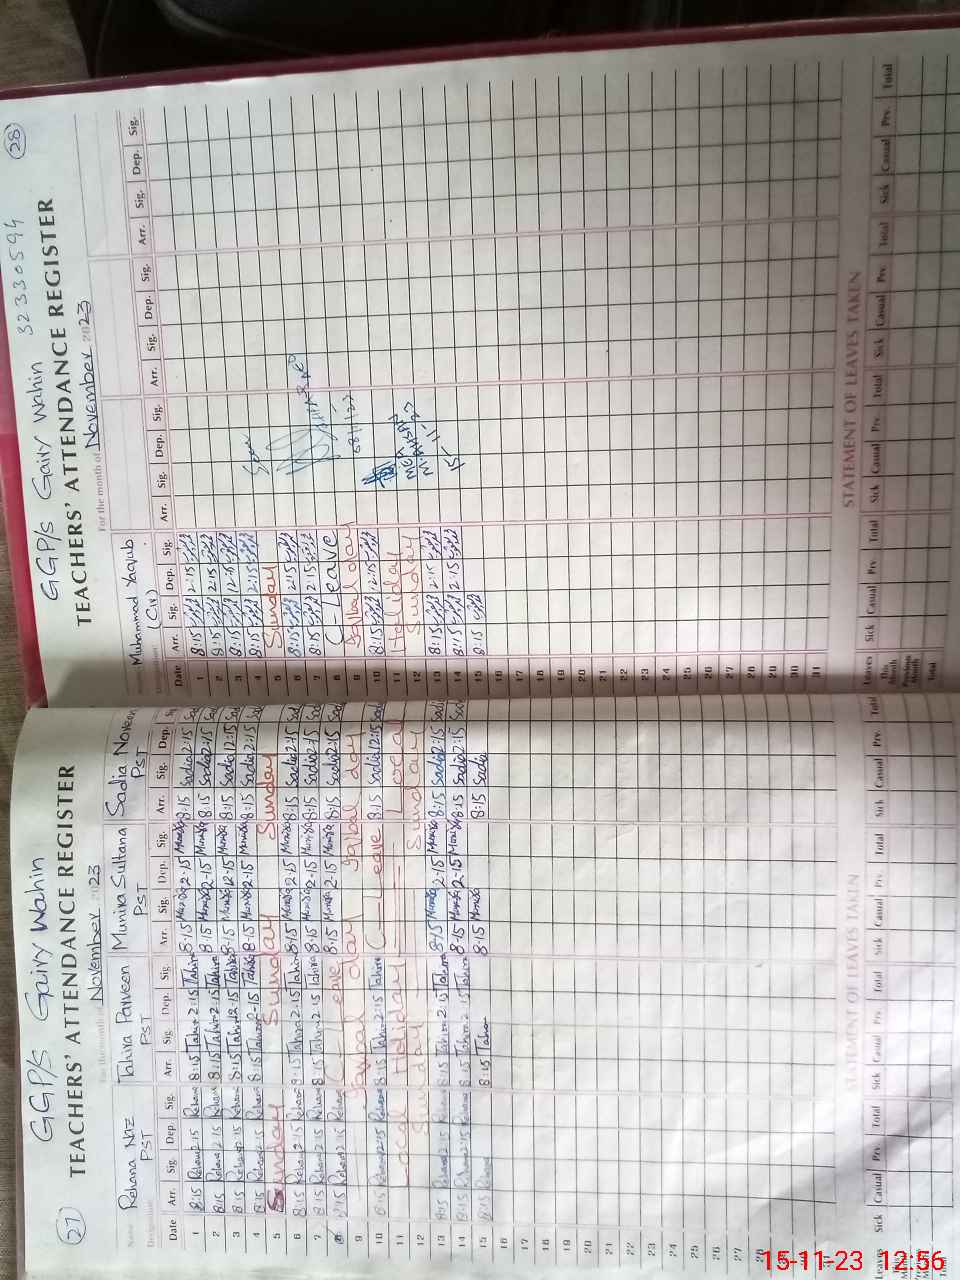 27
GGP/s Gairy Wahin
TEACHERS' ATTENDANCE REGISTER
For the month of November 2023
Name Rehana Naz Tahira Parveen Munira Sultana Sadia Noreen
Designation PST PST PST PST
Date Arr. Sig. Dep. Sig. Arr. Sig. Dep. Sig. Arr. Sig. Dep. Sig. Arr. Sig. Dep.
1 8:15 Rehana 2:15 Rehana 8:15 Tahira 2:15 Tahira 8:15 Munira 2-15 Munira 8:15 Sadia 2:15
2 8:15 Rehana 2:15 Rehana 8:15 Tahira 2:15 Tahira 8:15 Munira 2-15 Munira 8:15 Sadia 2:15
3 8:15 Rehana 12:15 Rehana 8:15 Tahira 12-15 Tahira 8-15 Munira 12-15 Munira 8:15 Sadia 12:15
4 8:15 Rehana 2:15 Rehana 8:15 Tahira 2-15 Tahira 8:15 Munira 2-15 Munira 8:15 Sadia 2:15
5 Sunday Sunday Sunday Sunday
6 8:15 Rehana 2:15 Rehana 8:15 Tahira 2-15 Tahira 8:15 Munira 2-15 Munira 8:15 Sadia 2:15
7 8:15 Rehana 2:15 Rehana 8:15 Tahira 2-15 Tahira 8:15 Munira 2-15 Munira 8:15 Sadia 2:15
8 8:15 Rehana 2:15 Rehana C-Leave 8:15 Munira 2-15 Munira 8:15 Sadia 2:15
9 Iqbal day Iqbal day
10 8:15 Rehana 12:15 Rehana 8:15 Tahira 12:15 Tahira C-Leave 8:15 Sadia 12:15
11 Local Holiday Local
12 Sunday Sunday
13 8:15 Rehana 2:15 Rehana 8:15 Tahira 2:15 Tahira 8:15 Munira 2-15 Munira 8:15 Sadia 2:15
14 8:15 Rehana 2:15 Rehana 8:15 Tahira 2:15 Tahira 8:15 Munira 2-15 Munira 8:15 Sadia 2:15
15 8:15 Rehana 8:15 Tahira 8:15 Munira 8:15 Sadia
16
17
18
19
20
21
22
23
24
25
26
27
28
29
30
31
STATEMENT OF LEAVES TAKEN
Leaves Sick Casual Prv. Total Sick Casual Prv. Total Sick Casual Prv. Total Sick Casual Prv. Total
This Month
Previous Month
Total
28
GGP/s Gairy Wahin 32330594
TEACHERS' ATTENDANCE REGISTER
For the month of November 2023
Muhammad Yaqub
(C iv)
Date Arr. Sig. Dep. Sig. Arr. Sig. Dep. Sig. Arr. Sig. Dep. Sig. Arr. Sig. Dep. Sig.
1 8:15 2:15
2 8:15 2:15
3 8:15 12:15
4 8:15 2:15
5 Sunday
6 8:15 2:15
7 8:15 2:15
8 C-Leave
9 Iqbal day
10 8:15 12:15
11 Holiday
12 Sunday
13 8:15 2:15
14 8:15 2:15
15 8:15
16
17
18
19
20
21
22
23
24
25
26
27
28
29
30
31
STATEMENT OF LEAVES TAKEN
Leaves Sick Casual Prv. Total Sick Casual Prv. Total Sick Casual Prv. Total Sick Casual Prv. Total
This Month
Previous Month
Total
15-11-23 12:56